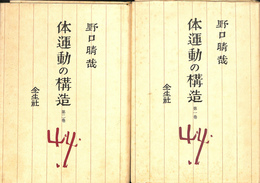 野口晴哉
体運動の構造
第二巻
全生社
野口晴哉
体運動の構造
第一巻
全生社